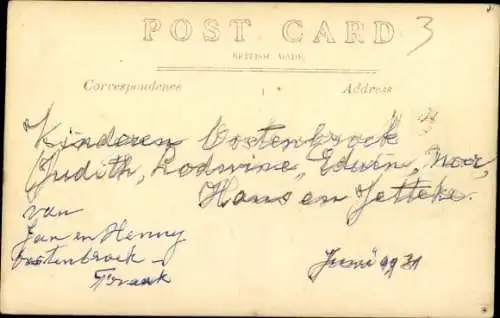 POST CARD
3
BRITISH MADE
Correspondence
Address
Kinderen Oostenbroek
Judith, Lodwine, Edwin, Noor,
Hans en Jetteke.
van
Jan en Henny
Oostenbroek -
Juni 1931